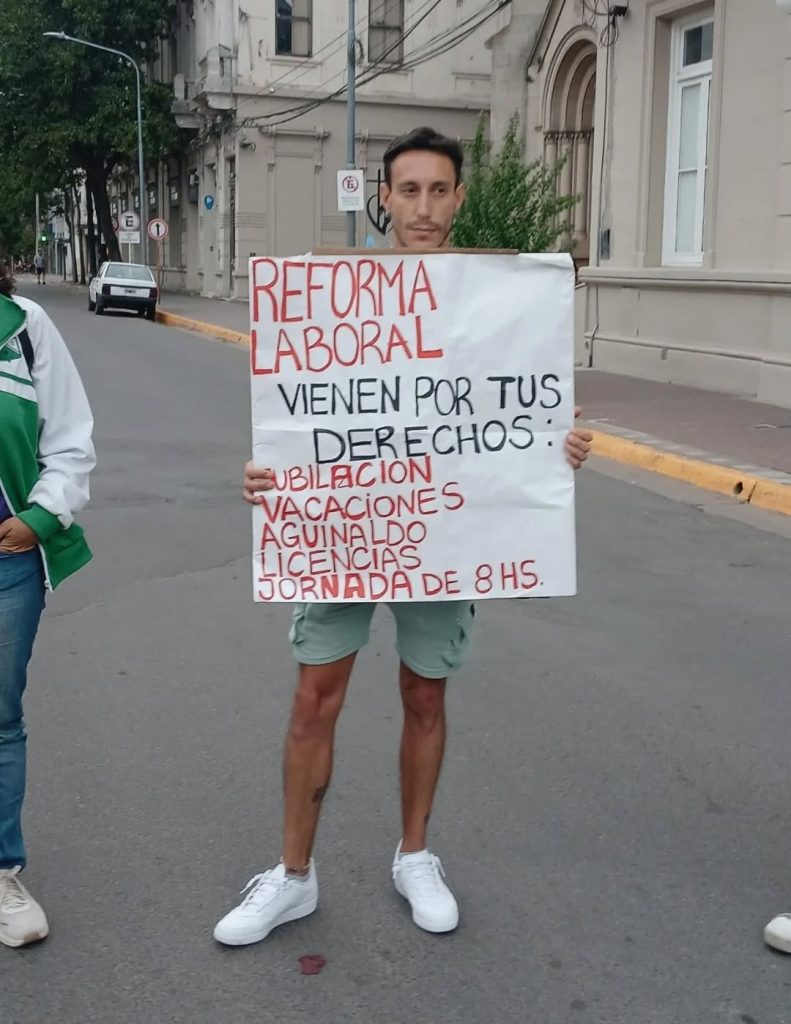 REFORMA
LABORAL
VIENEN POR TUS
DERECHOS:
JUBILACION
VACACIONES
AGUINALDO
LICENCIAS
JORNADA DE 8 HS.